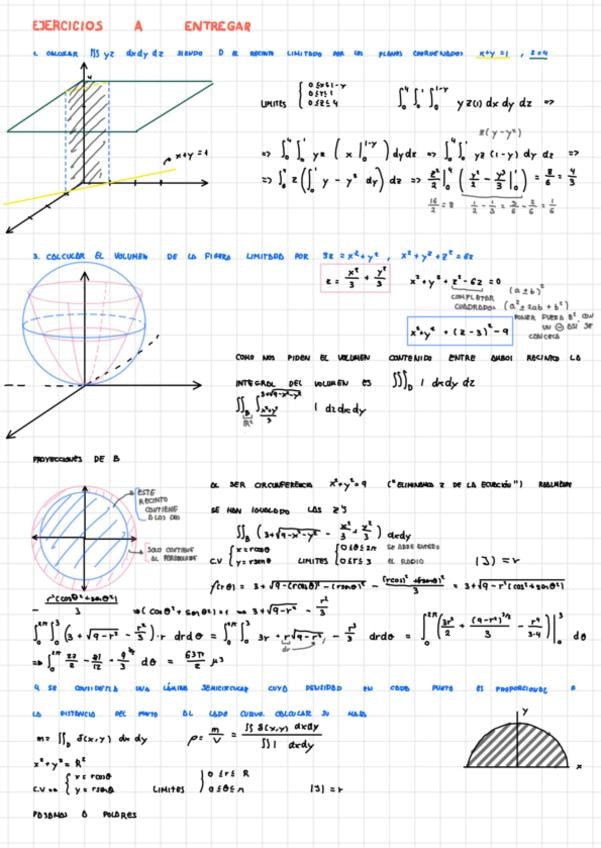 EJERCICIOS A ENTREGAR
1. CALCULAR ∭ yz dxdy dz SIENDO D EL RECINTO LIMITADO POR LOS PLANOS COORDENADOS x+y=1 , z=4
LIMITES { 0≤x≤1-y 0≤y≤1 0≤z≤4 ∫₀⁴ ∫₀¹ ∫₀^{1-y} yz(1) dx dy dz =>
4
x+y=1
z(y-y²)
=> ∫₀⁴ ∫₀¹ yz ( x |₀^{1-y} ) dydz => ∫₀⁴ ∫₀¹ yz (1-y) dy dz =>
=> ∫₀⁴ z ( ∫₀¹ y - y² dy ) dz => z²/2 |₀⁴ ( y²/2 - y³/3 |₀¹ ) = 8/6 = 4/3
16/2 = 8 1/2 - 1/3 = 3/6 - 2/6 = 1/6
3. CALCULAR EL VOLUMEN DE LA FIGURA LIMITADA POR 3z = x²+y² , x²+y²+z² = 6z
z = x²/3 + y²/3 x²+y²+z²-6z = 0
COMPLETAR CUADRADOS (a±b)²
(a²±2ab+b²)
x²+y² + (z-3)² - 9
PONER FUERA B² CON UN ⊖ ASÍ SE CANCELA
COMO NOS PIDEN EL VOLUMEN CONTENIDO ENTRE AMBOS RECINTOS LA
INTEGRAL DEL VOLUMEN ES ∭_D 1 dxdy dz
∬_B ∫_{(x²+y²)/3}^{3+√(9-x²-y²)} 1 dz dx dy
R²
PROYECCIONES DE B
ESTE RECINTO CONTIENE A LOS DOS
SOLO CONTIENE AL PARABOLOIDE
AL SER CIRCUNFERENCIA x²+y²=9 ("ELIMINAMOS Z DE LA ECUACIÓN") REALMENTE
SE HAN IGUALADO LAS Z'S
∬_B (3+√(9-x²-y²) - x²/3 + y²/3) dxdy
C.V { x = r cosθ y = r senθ LIMITES { 0≤θ≤2π 0≤r≤3 EL RADIO |J| = r
f(r,θ) = 3+√(9-(r cosθ)²-(r senθ)²) - (r cosθ)²+(r senθ)²/3 = 3+√(9-r²(cos²θ+senθ²)
- r²(cosθ²+senθ²)/3 => (cosθ²+senθ²)=1 => 3+√(9-r²) - r²/3
∫₀^{2π} ∫₀³ (3+√(9-r²) - r²/3)·r drdθ = ∫₀^{2π} ∫₀³ 3r + r√(9-r²) - r³/3 drdθ = ∫₀^{2π} ( 3r²/2 + (9-r²)^{3/2}/3 - r⁴/3·4 ) |₀³ dθ
=> ∫₀^{2π} 27/2 - 81/12 - 9^{3/2}/3 dθ = 63π/2 μ³
4. SE CONSIDERA UNA LÁMINA SEMICIRCULAR CUYA DENSIDAD EN CADA PUNTO ES PROPORCIONAL A
LA DISTANCIA DEL PUNTO AL LADO CURVO. CALCULAR SU MASA
m = ∬_D δ(x,y) dx dy ρ = m/V = ∬ δ(x,y) dxdy / ∬ 1 dxdy
x²+y² = R²
C.V => { x = r cosθ y = r senθ LIMITES { 0≤r≤R 0≤θ≤π |J| = r
y
x
PASAMOS A POLARES